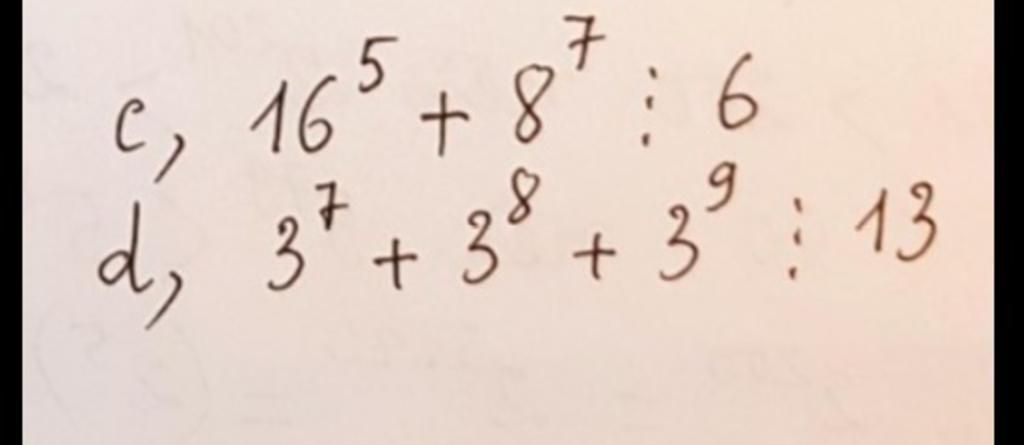 c, 16⁵ + 8⁷ ⋮ 6
d, 3⁷ + 3⁸ + 3⁹ ⋮ 13